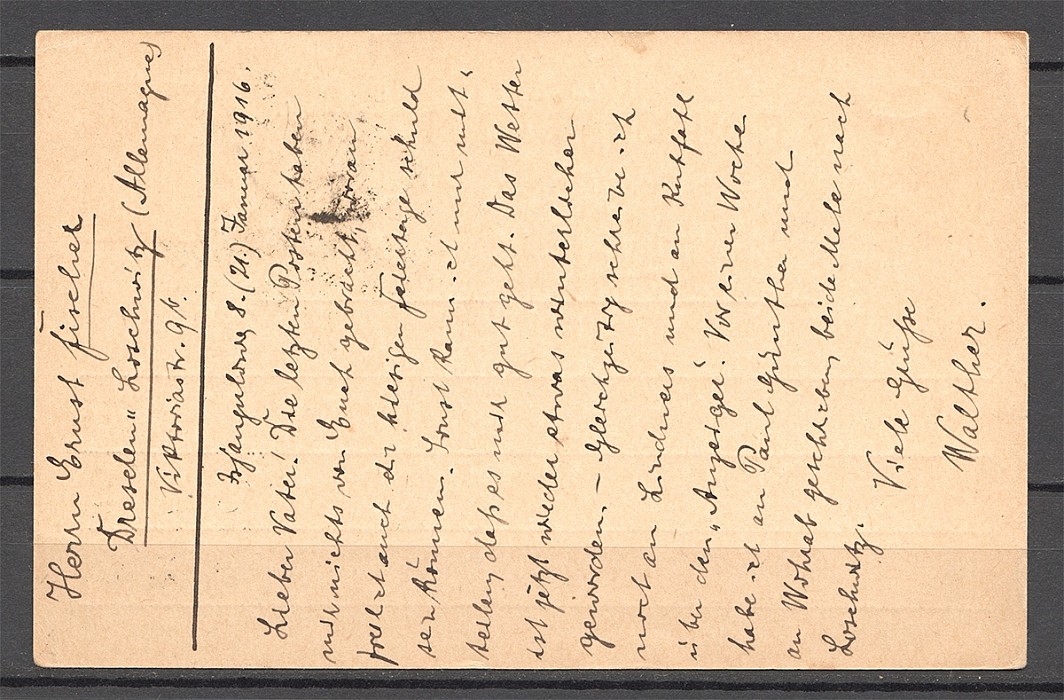 Herrn Ernst Fischer
Dresden-Loschwitz (Allemagne)
Viktoriastr. 9b.
8. (21.) Januar 1916.
Lieber Vater! Die letzten Posten haben
mir nichts von Euch gebracht, woran
freilich auch die hiesigen Feiertage schuld
sein können. Sonst kann ich nur mit-
teilen, daß es mir gut geht. Das Wetter
ist jetzt wieder etwas winterlicher
geworden. – Gleichzeitig schreibe ich
noch an Lindners und an
über den „Anzeiger“. Vor einer Woche
habe ich an Paul Günther und
an geschrieben, beide Male nach
Loschwitz.
Viele Grüße
Walther.